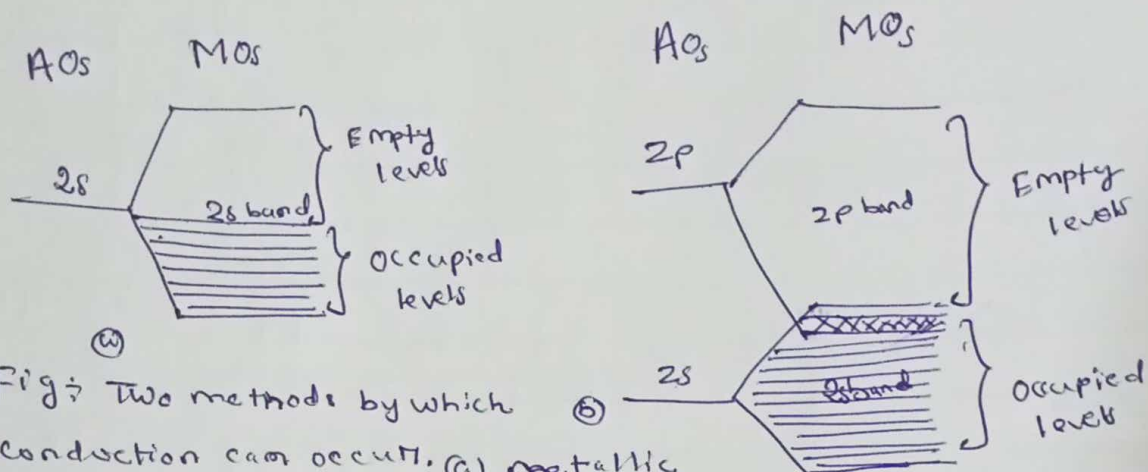 AOs MOs
AOs MOs
Empty
levels
2s
2s band
Occupied
levels
(a)
2p
2p band
Empty
levels
2s
2s band
Occupied
levels
(b)
Fig: Two methods by which
conduction can occur. (a) metallic